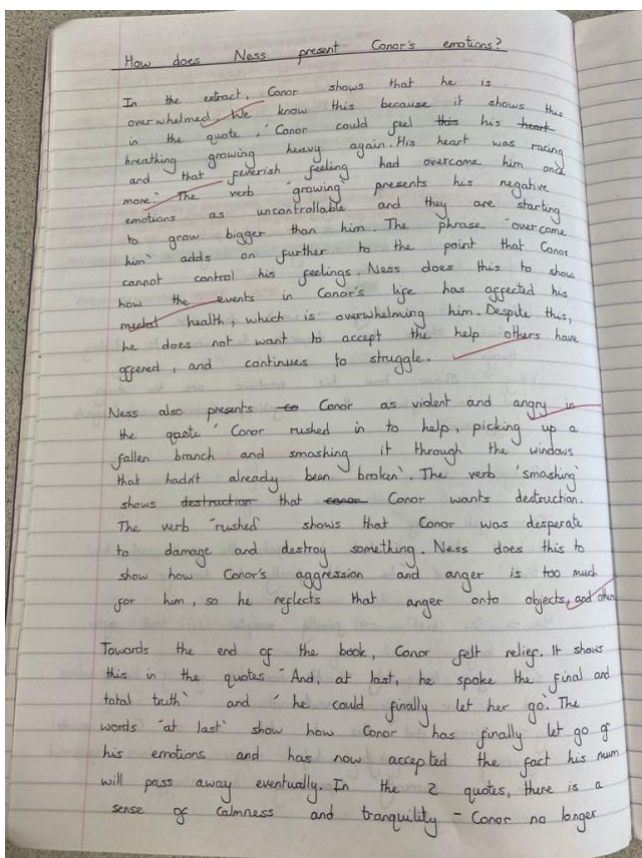 How does Ness present Conor's emotions?
In the extract, Conor shows that he is
overwhelmed. We know this because it shows this
in the quote, 'Conor could feel this his heart
breathing growing heavy again. His heart was racing
and that feverish feeling had overcome him once
more.' The verb 'growing' presents his negative
emotions as uncontrollable and they are starting
to grow bigger than him. The phrase 'overcome
him' adds on further to the point that Conor
cannot control his feelings. Ness does this to show
how the events in Conor's life has affected his
mental health, which is overwhelming him. Despite this,
he does not want to accept the help others have
offered, and continues to struggle.
Ness also presents Conor as violent and angry in
the quote 'Conor rushed in to help, picking up a
fallen branch and smashing it through the windows
that hadn't already been broken'. The verb 'smashing'
shows destruction that Conor Conor wants destruction.
The verb 'rushed' shows that Conor was desperate
to damage and destroy something. Ness does this to
show how Conor's aggression and anger is too much
for him, so he reflects that anger onto objects, and
Towards the end of the book, Conor felt relief. It shows
this in the quotes 'And, at last, he spoke the final and
total truth' and 'he could finally let her go'. The
words 'at last' show how Conor has finally let go of
his emotions and has now accepted the fact his mum
will pass away eventually. In the 2 quotes, there is a
sense of calmness and tranquility - Conor no longer